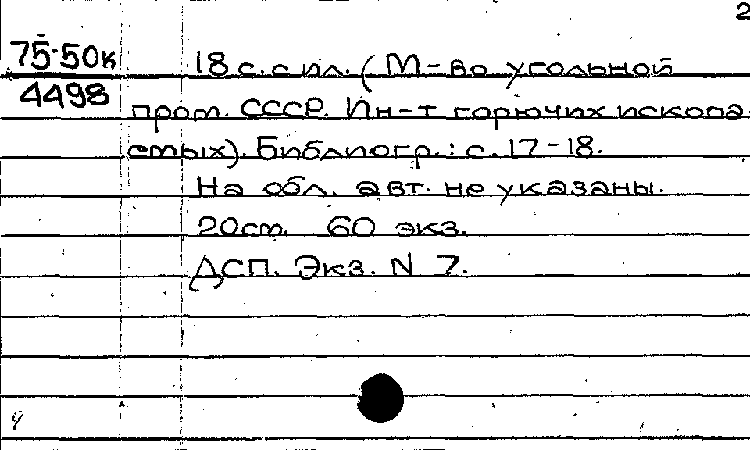 2
75-50к 18 с. с ил. (М-во угольной
4498 пром. СССР. Ин-т горючих ископа
емых). Библиогр.: с. 17-18.
На обл. авт. не указаны.
20см. 60 экз.
ДСП. Экз. N 7.